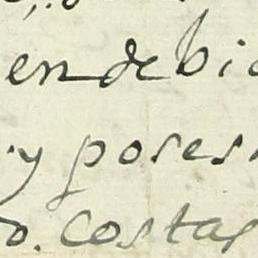 en debi
y poses
o. costas